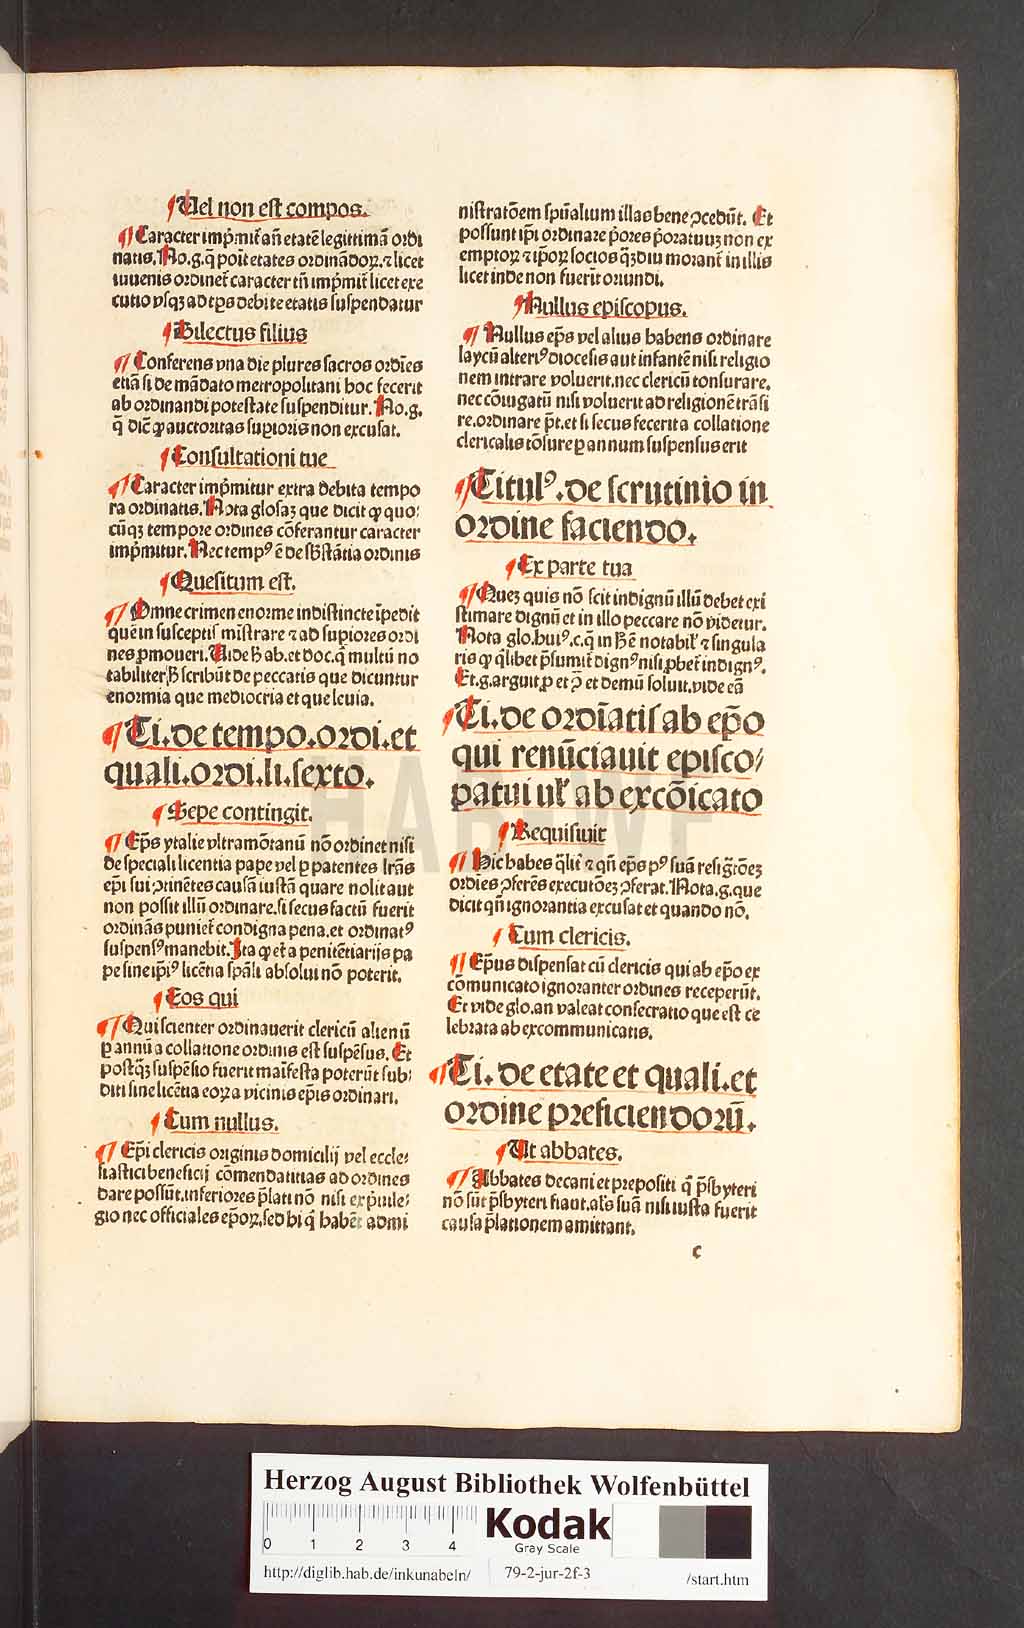 ¶ Uel non est compos.
¶ Caracter impͥmit᷑ an̄ etatē legittimā ordi
natis. No.g.q̄ ponit etates ordinādoꝝ.⁊ licet
iuuenis ordinet᷑ caracter tn̄ impͥmit᷑ licet exe
cutio vsqꝫ ad tp̄s debite etatis suspendatur
¶ Dilectus filius
¶ Conferens vna die plures sacros ordīes
etiā si de mādato metropolitani hoc fecerit
ab ordinandi potestate suspenditur. No.g.
q̄ dic̄ ꝙ auctoritas suꝑioris non excusat.
¶ Consultationi tue
¶ Caracter impͥmitur extra debita tempo
ra ordinatis. Nota glosaꝫ que dicit ꝙ quo⸗
cūqꝫ tempore ordines cōferantur caracter
impͥmitur. Nec tempꝰ ē de sb̄stātia ordinis
¶ Quesitum est.
¶ Omne crimen enorme indistincte īpedit
quē in susceptis mīstrare ⁊ ad suꝑiores ordi
nes ꝓmoueri. Uide h̄ ab. et doc. q̄ multū no
tabiliter h̄ scribūt de peccatis que dicuntur
enormia que mediocria et que leuia.
¶ Ti. de tempo. ordi. et
quali. ordi. li. sexto.
¶ Sepe contingit.
¶ Ep̄s ytalie vltramōtanū nō ordinet nisi
de speciali licentia pape vel ꝑ patentes lr̄as
ep̄i sui ꝯtinētes causā iustā quare nolit aut
non possit illū ordinare. si secus factū fuerit
ordinās puniet᷑ condigna pena. et ordinatꝰ
suspensꝰ manebit. Ita ꝙ et᷑ a penitētiarijs pa
pe sine ip̄iꝰ licētia sp̄ali absolui nō poterit.
¶ Eos qui
¶ Qui scienter ordinauerit clericū alienū
ꝑ annū a collatione ordinis est suspēsus. Et
postqꝫ suspēsio fuerit maīfesta poterūt sub⸗
diti sine licētia eoꝝ a vicinis ep̄is ordinari.
¶ Cum nullus.
¶ Ep̄i clericis originis domicilij vel eccle⸗
siastici beneficij cōmendatitias ad ordines
dare possūt. inferiores p̄lati nō nisi ex pͥuile⸗
gio nec officiales ep̄oꝝ. sed hi q̄ habēt admi
nistratōem spūalium illas bene ꝯcedūt. Et
possunt ip̄i ordinare pͥores pͥoratuuꝫ non ex
emptoꝝ ⁊ ip̄oꝝ socios qꝫdiu morant᷑ in illis
licet inde non fuerīt oriundi.
¶ Nullus episcopus.
¶ Nullus ep̄s vel alius habens ordinare
laycū alteriꝰ diocesis aut infantē nisi religio
nem intrare voluerit. nec clericū tonsurare.
nec cōiugatū nisi voluerit ad religionē trāsi
re. ordinare pt̄. et si secus fecerit a collatione
clericalis tōsure ꝑ annum suspensus erit
¶ Titulꝰ. de scrutinio in
ordine faciendo.
¶ Ex parte tua
¶ Queꝫ quis nō scit indignū illū debet exi
stimare dignū et in illo peccare nō videtur.
Nota glo. huiꝰ.c.q̄ in h̄ ē notabil̓ ⁊ singula
ris ꝙ q̓libet p̄sumit᷑ dignꝰ nisi ꝓbet᷑ indignꝰ.
Et.g. arguit ꝓ et ꝯ̄ et demū soluit. vide eā
¶ Ti. de ordīatis ab ep̄o
qui renūciauit episco⸗
patui ul̓ ab excōicato
¶ Requisiuit
¶ Hic habes q̄lit᷑ ⁊ qn̄ ep̄s pꝰ suā resig̓tōeꝫ
ordīes ꝯferēs executōeꝫ ꝯferat. Nota.g. que
dicit qn̄ ignorantia excusat et quando nō.
¶ Cum clericis.
¶ Ep̄us dispensat cū clericis qui ab ep̄o ex
cōmunicato ignoranter ordines receperūt.
Et vide glo. an valeat consecratio que est ce
lebrata ab excommunicatis.
¶ Ti. de etate et quali. et
ordine preficiendorū.
¶ Ut abbates.
¶ Abbates decani et prepositi q̄ p̄sbyteri
nō sūt p̄sbyteri fiant. al̓s suā nisi iusta fuerit
causa p̄lationem amittant.
c
HAB-WF
Herzog August Bibliothek Wolfenbüttel
0 1 2 3 4
Kodak
Gray Scale
http://diglib.hab.de/inkunabeln/ 79-2-jur-2f-3 /start.htm